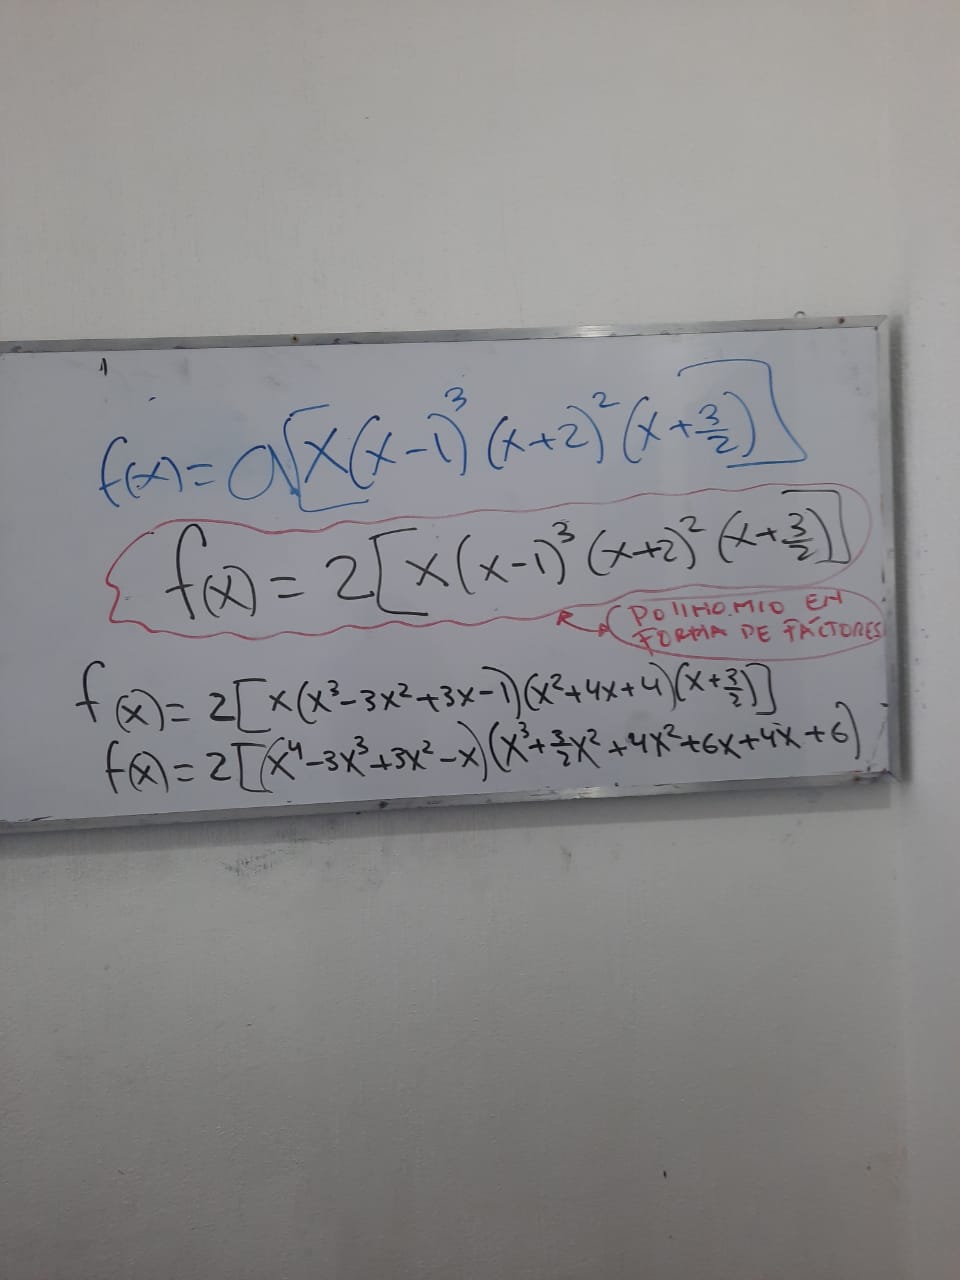 1
f(x) = a[x(x-1)³ (x+2)² (x+3/2)]
f(x) = 2[x(x-1)³ (x+2)² (x+3/2)]
POLINOMIO EN
FORMA DE FACTORES
f(x) = 2[x(x³-3x²+3x-1)(x²+4x+4)(x+3/2)]
f(x) = 2[(x⁴-3x³+3x²-x)(x³+3/2x²+4x²+6x+4x+6)